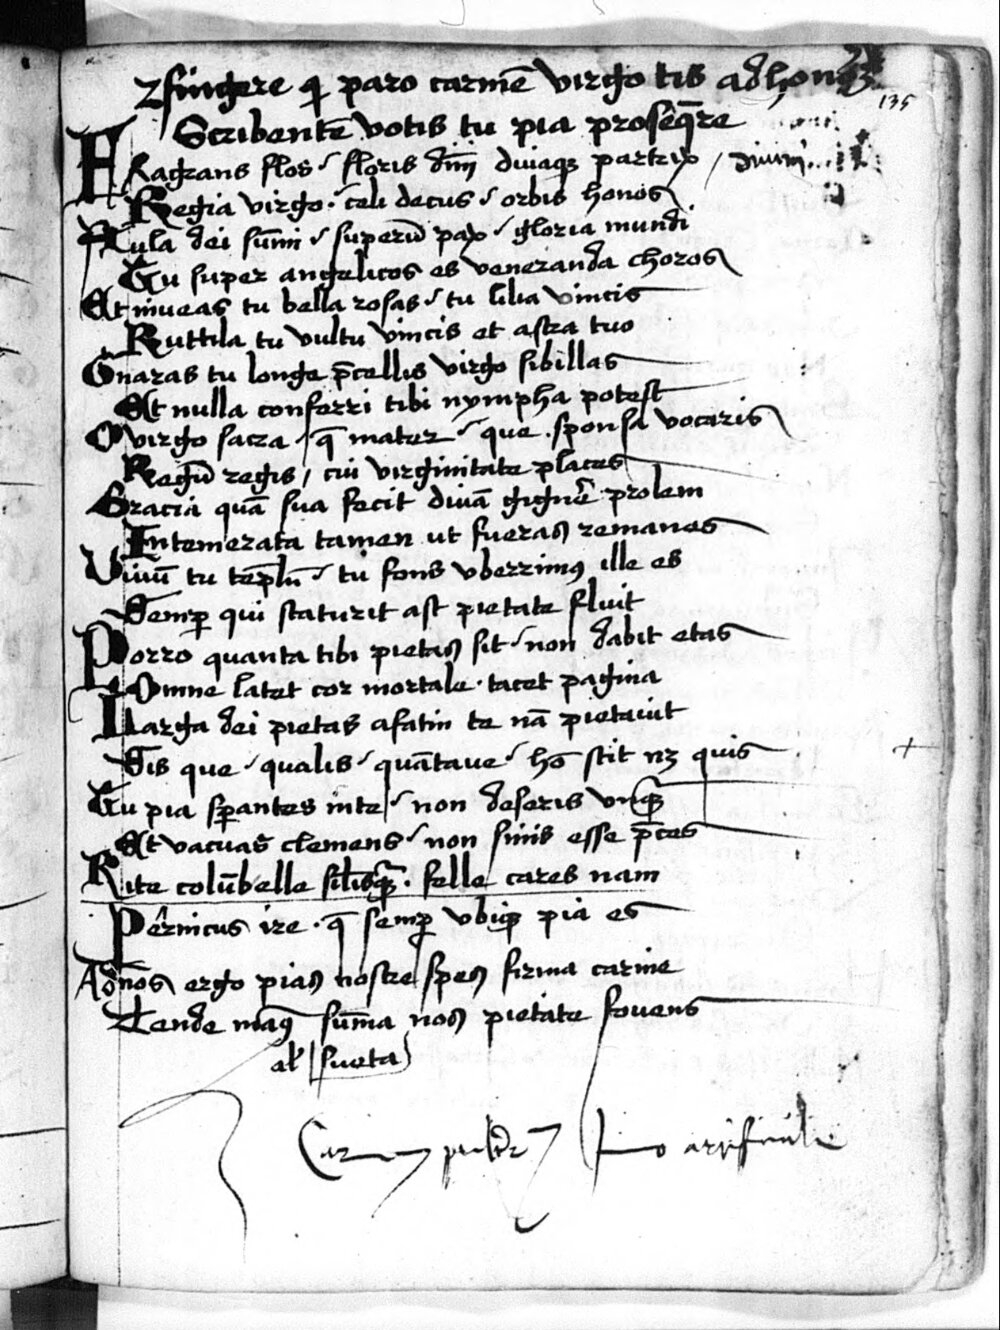 fingere q̄ paro carmē virgo tis ad hono
135
Scribentē votis tu pia proseq̄re
FRagrans flos / floris dn̄i divaqȝ partrix /
Regia virgo · celi decus / orbis honos
Aula dei sūmi / superū pax / gloria mundi
Tu super angelicos es veneranda choros
Et niveas tu bella rosas / tu lilia vincis
Ruttila tu vultu vincis et astra tuo
Gnaras tu longe p̄cellis virgo sibillas
Et nulla conferri tibi nympha potest
O virgo sacra / q̄ mater / que sponsa vocaris
Regū regis / cui virginitate places
Gracia quā sua fecit divā gignē prolem
Intemerata tamen ut fueras remanes
Vivū tu tēplū / tu fons vberrimꝰ ille es
Semꝑ qui staturit ast pietate fluit
Porro quanta tibi pietas sit / non dabit etas
Omne latet cor mortale · tacet pagina
Larga dei pietas afatin te nā pietavit
Sis que / qualis / quātave / hō stit nȝ quis
Tu pia sꝑantes in te / non deseris vnqȝ
Et vacuas clemens / non sinis esse p̄ces
Rite colūbelle silisqȝ · felle cares nam
Pernicus ire · q̄ semꝑ vbiqȝ pia es
Agnos ergo pias nostre spes firma carine
Tende manꝰ sūma nos pietate fovens
al' sueta